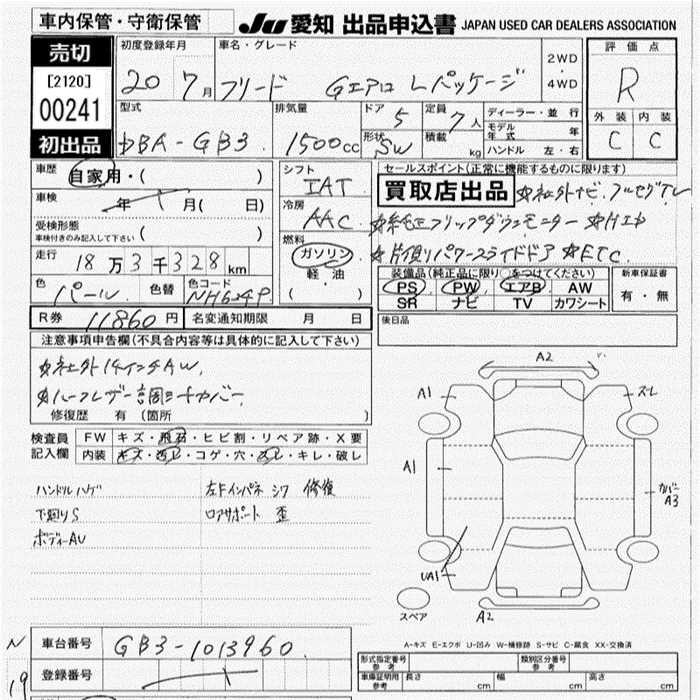 車内保管・守衛保管
JU 愛知 出品申込書 JAPAN USED CAR DEALERS ASSOCIATION
売切
[2120]
00241
初出品
初度登録年月
20 7月
車名・グレード
フリード Gエアロ Lパッケージ
2WD
・
4WD
評価点
R
外装 内装
C C
型式
DBA-GB3
排気量
1500cc
ドア 5
形状 SW
定員 7人
積載 kg
ディーラー・並行
モデル年式 年
ハンドル 左・右
車歴 自家用・( )
車検 年 月( 日)
受検形態
車検付きのみ記入して下さい ( )
走行 18万3千328km
色 パール 色替 色コード NH624P
シフト
IAT
冷房
AAC
燃料
ガソリン
軽・油
( )
セールスポイント(正常に機能するものに限ります)
買取店出品 ☆社外ナビ、フルセグTV
☆純正フリップダウンモニター ☆HID
☆片側パワースライドドア ☆ETC
装備品(純正品に限り○をつけてください)
PS PW エアB AW
SR ナビ TV カワシート
新車保証書
有・無
R券 11860円 名変通知期限 月 日
後日品
注意事項申告欄(不具合内容等は具体的に記入して下さい)
☆社外14インチAW
☆ハーフレザー調シートカバー
修復歴 有 (箇所 )
検査員記入欄
FW キズ・飛石・ヒビ割・リペア跡・X要
内装 キズ・汚レ・コゲ・穴・スレ・キレ・破レ
ハンドルハゲ 左Fインパネ シワ 修復
下廻りS ロアサポート 歪
ボディーAU
A2
A1 ズレ
A1
カバーA3
UA1
スペア A2
A-キズ E-エクボ U-凹み W-補修跡 S-サビ C-腐食 XX-交換済
車台番号 GB3-1013960
登録番号
N
19
形式指定番号 参考 類別区分番号 参考
車庫証明用 参考 長さ cm 幅 cm 高さ cm